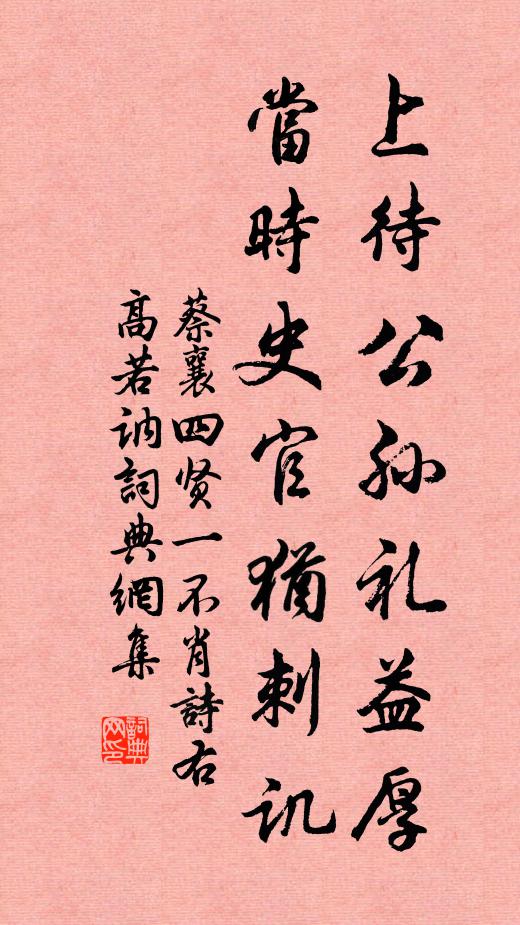 上待公孙礼益厚
當時史官猶刺讥
蔡襄四贤一不肖詩右
高若讷詞典網集
詞典网印